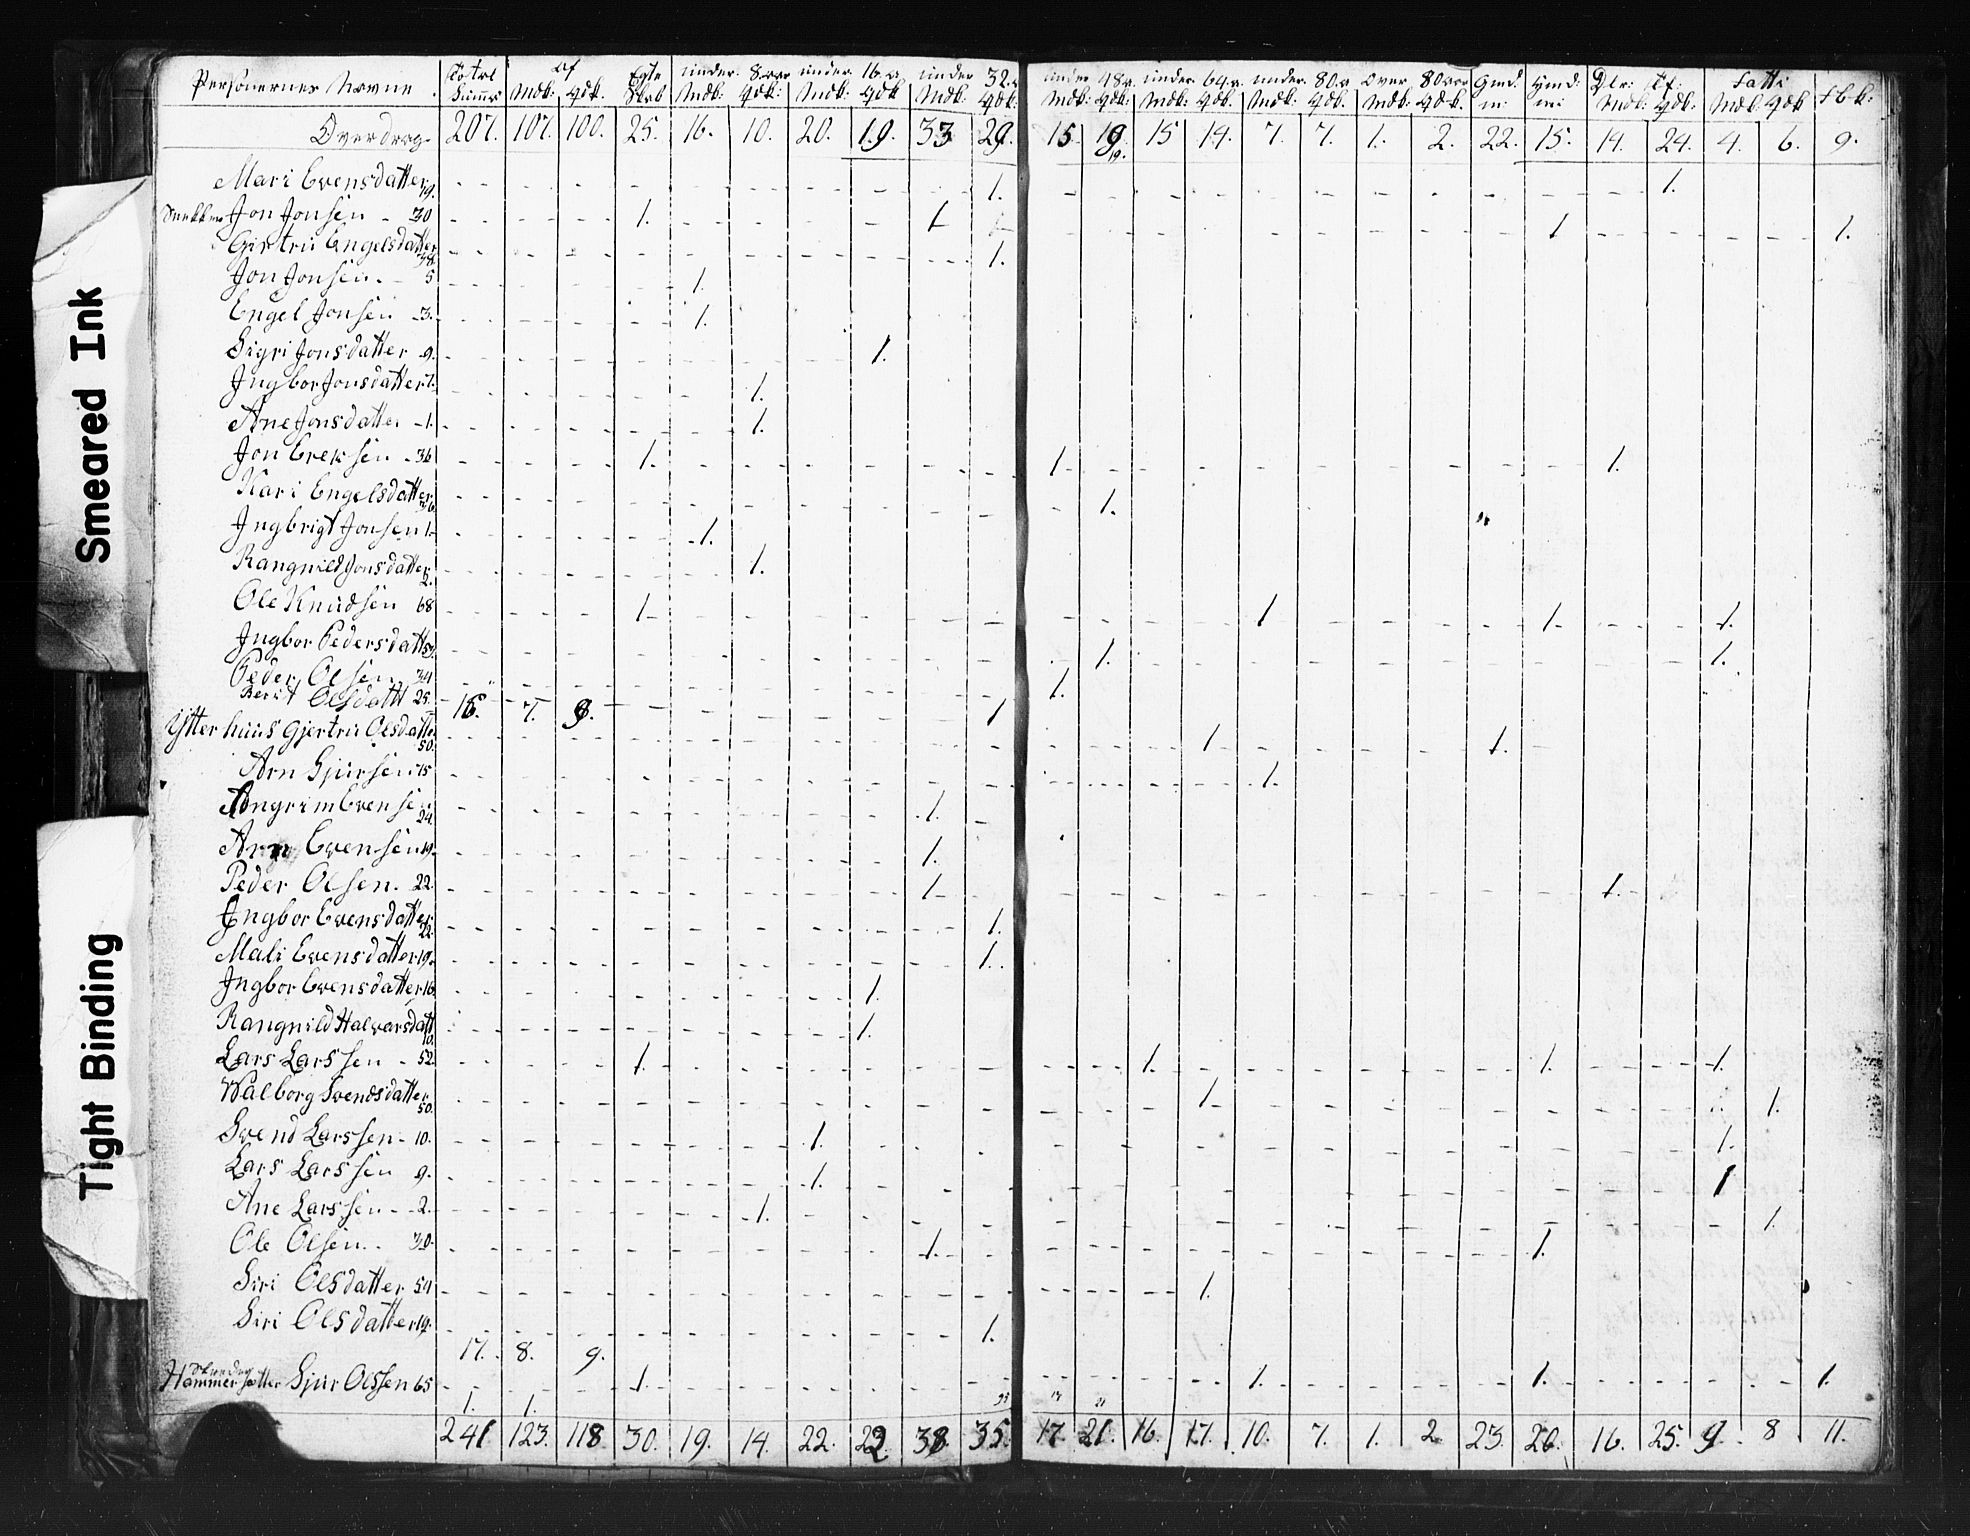 Smeared Ink
Tight Binding
Personernes Navne Total Summe af Mdk: Qdk. Egte Skab under 8. aar Mdk: Qdk: under 16. a. Mdk: Qdk under 32. a. Mdk: Qdk: under 48 a. Mdk: Qdk: under 64. a. Mdk: Qdk. under 80. a. Mdk: Qdk. over 80 aar Mdk: Qdk. Gmd: m: Hmd: m: Mdk: Qdk: Fatti Mdk. Qdk Fbk:
Overdrag. 207. 107. 100. 25. 16. 10. 20. 19. 33 29. 15. 19. 15 14. 7. 7. 1. 2. 22. 15. 14. 24. 4. 6. 9.
19.
Mari Evensdatter 19. 1. 1.
Snekker Jon Jonsen - 30 1. 1 1 1.
Girtru Engelsdatter 38. 1.
Jon Jonsen. - 5 1.
Engel Jonsen - 3. 1.
Sigri Jonsdatter - 9. 1.
Ingbor Jonsdatter 7. 1.
Ane Jonsdatter - 1. 1.
Jon Ereksen - 36 1. 1 1.
Kari Engelsdatter 36. 1.
Ingbrigt Jonsen 1. 1.
Rangnild Jonsdatter 2. 1.
Ole Knudsen 68 1 1 1. 1.
Ingbor Pedersdatt 1. 1.
Peder Olsen 34 1.
Berit Olsdatt 25. 16. 7. 9. 1
Ytterhuus Gjertru Olsdatter 50. 1 1.
Arn Sjursen 75 1.
Angrim Evensen 24. 1.
Arn Evensen 19. 1.
Peder Olsen. 22. 1 1.
Ingbor Evensdatter 22. 1.
Mali Evensdatter 19. 1.
Ingbor Evensdatter 16 1.
Rangnild Halvarsdatt 10. 1.
Lars Larssen - 52 1. 1. 1. 1.
Walborg Svendsdatter 50. 1 1.
Svend Larssen - 10. 1. 1.
Lars Larssen 9. 1. 1
Ane Larssen - 2. 1. 1.
Ole Olsen. 30. 1. 1.
Siri Olsdatter 54 1.
Siri Olsdatter 19. 1.
17. 8. 9.
Hammersætter Sjur Olssen 65 1. 1. 1. 1.
1. 1.
241 123. 118 30. 19. 14. 22. 22 38. 35. 17. 21. 16. 17. 10. 7. 1. 2. 23. 20. 16. 25. 9. 8 11.